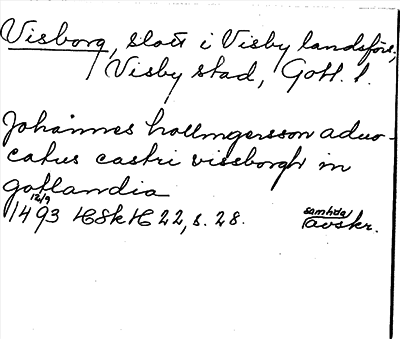 Visborg, slott i Visby landsförs.,
Visby stad, Gotl. l.
Johannes hollmgersson advo-
catus castri vissborgh in
gotlandia
12/9
1493 HSkH 22, s. 28.
samtida
avskr.